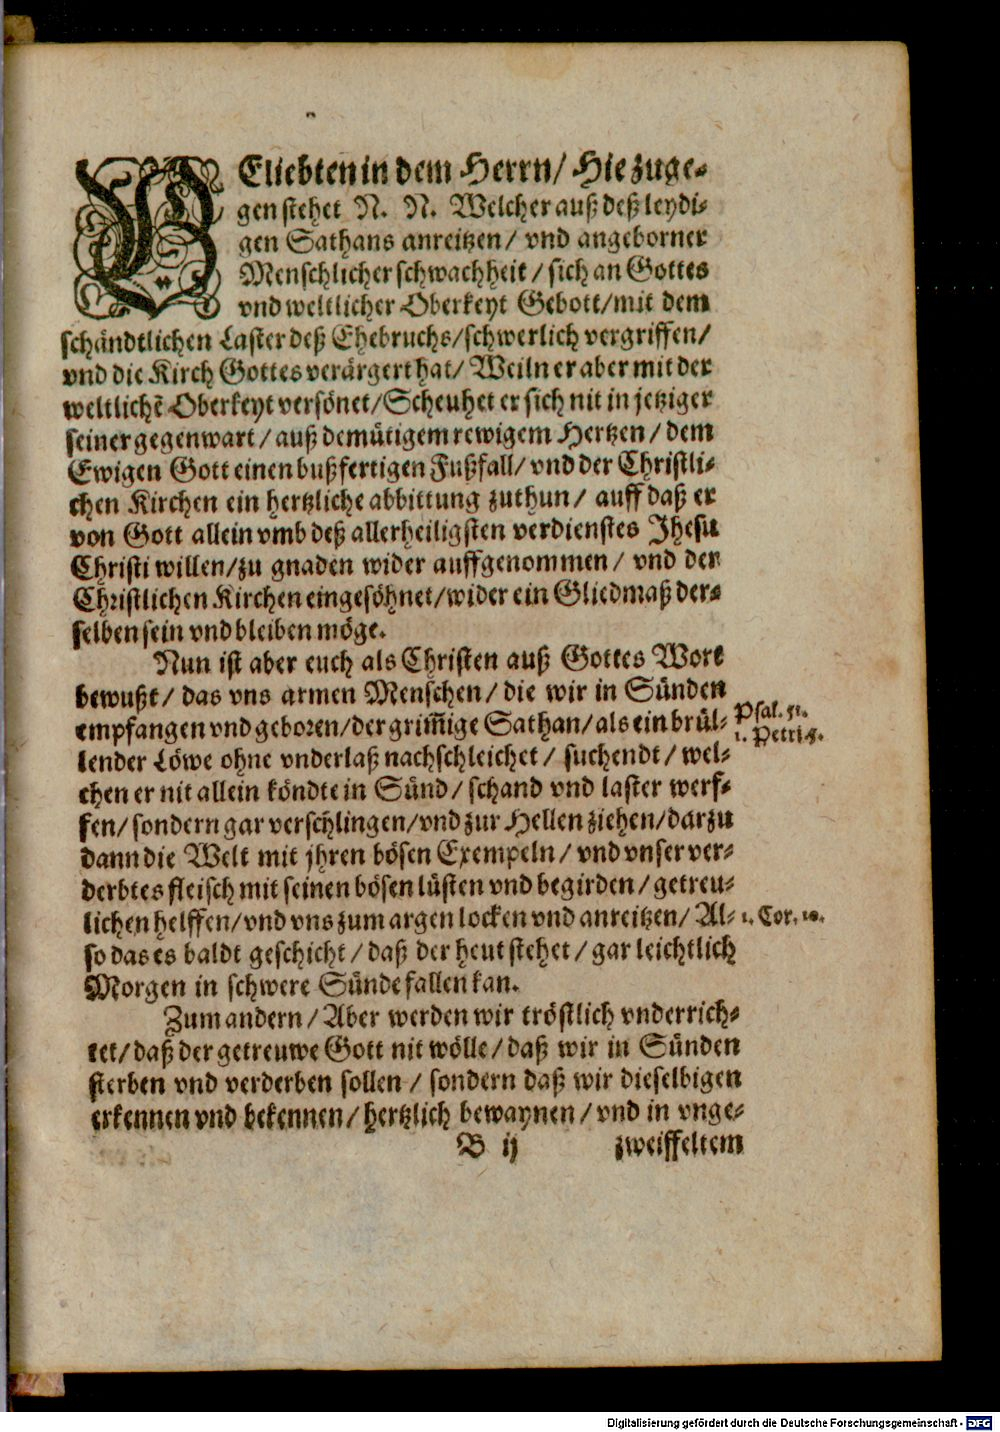 GEliebten in dem Herrn/ Hie zuge-
gen stehet N. N. Welcher auß deß leydi-
gen Sathans anreitzen/ vnd angeborner
Menschlicher schwachheit/ sich an Gottes
vnd weltlicher Oberkeyt Gebott/ mit dem
schändtlichen Laster deß Ehebruchs/ schwerlich vergriffen/
vnd die Kirch Gottes verärgert hat/ Weiln er aber mit der
weltlichē Oberkeyt versönet/ Scheuhet er sich nit in jetziger
seiner gegenwart/ auß demütigem rewigem Hertzen/ dem
Ewigen Gott einen bußfertigen Fußfall/ vnd der Christli-
chen Kirchen ein hertzliche abbittung zuthun/ auff daß er
von Gott allein vmb deß allerheiligsten verdienstes Jhesu
Christi willen/ zu gnaden wider auffgenommen/ vnd der
Christlichen Kirchen eingesöhnet/ wider ein Gliedmaß der-
selben sein vnd bleiben möge.
Nun ist aber euch als Christen auß Gottes Wort
bewußt/ das vns armen Menschen/ die wir in Sünden
empfangen vnd geboren/ der grim̄ige Sathan/ als ein brül-
Psal. 51.
1. Petri 5.
lender Löwe ohne vnderlaß nachschleichet/ suchendt/ wel-
chen er nit allein köndte in Sünd/ schand vnd laster werf-
fen/ sondern gar verschlingen/ vnd zur Hellen ziehen/ darzu
dann die Welt mit jhren bösen Exempeln/ vnd vnser ver-
derbtes fleisch mit seinen bösen lüsten vnd begirden/ getreu-
lichen helffen/ vnd vns zum argen locken vnd anreitzen/ Al-
1. Cor. 10.
so das es baldt geschicht/ daß der heut stehet/ gar leichtlich
Morgen in schwere Sünde fallen kan.
Zum andern/ Aber werden wir tröstlich vnderrich-
tet/ daß der getreuwe Gott nit wölle/ daß wir in Sünden
sterben vnd verderben sollen/ sondern daß wir dieselbigen
erkennen vnd bekennen/ hertzlich bewaynen/ vnd in vnge-
B ij zweiffeltem
Digitalisierung gefördert durch die Deutsche Forschungsgemeinschaft - DFG